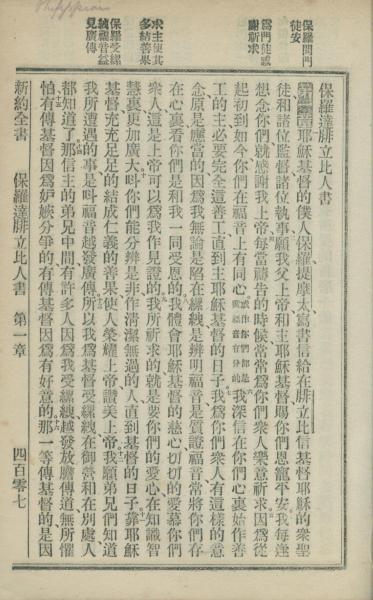 Philippians
保羅問門徒安
爲門徒感謝祈求
求主使其多結善果
保羅受縲絏福音益見廣傳
保羅達腓立比人書
耶穌基督的僕人保羅提摩太寫書信給在腓立比信基督耶穌的衆聖
徒和諸位監督諸位執事願我父上帝和主耶穌基督賜你們恩寵平安我每逢
想念你們就感謝我上帝每當禱告的時候常常爲你們衆人樂意祈求因爲從
起初到如今你們在福音上有同心我深信在你們心裏始作善
工的主必要完全這善工直到主耶穌基督的日子我爲你們衆人有這樣的意
念原是應當的因爲我無論是陷在縲絏是辨明福音是質證福音常將你們存
在心裏看你們是和我一同受恩的我體會耶穌基督的慈心切切的愛慕你們
衆人這是上帝可以爲我作見證的我所祈求的就是要你們的愛心在知識智
慧裏更加廣大叫你們能分辨是非作清潔無過的人直到基督的日子靠耶穌
基督充充足足的結成仁義的善果使人榮耀上帝讚美上帝我願弟兄們知道
我所遭遇的事是叫福音越發廣傳所以我爲基督受縲絏在御營和在別處人
都知道了那信主的弟兄中間有許多人因爲我受縲絏越發放膽傳道無所懼
怕有傳基督因爲妒嫉分爭的有傳基督因爲有好意的那一等傳基督的是因
新約全書 保羅達腓立比人書 第一章 四百零七